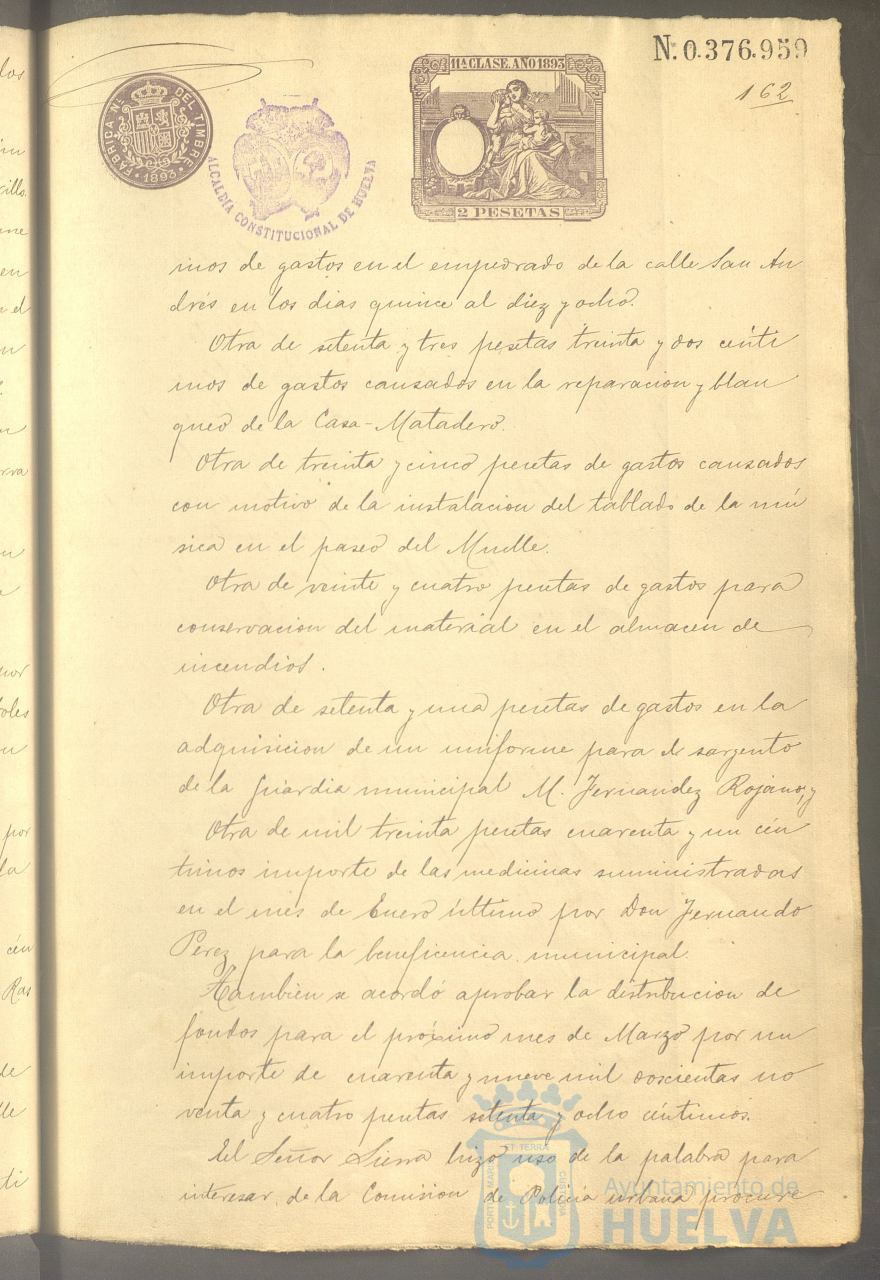 Nº 0.376.959
162
FABRICA Nˡ DEL TIMBRE
1893
ALCALDÍA CONSTITUCIONAL DE HUELVA
11ª CLASE. AÑO 1893
2 PESETAS
mos de gastos en el empedrado de la calle San An
drés en los dias quince al diez y ocho.
Otra de setenta y tres pesetas treinta y dos cénti
mos de gastos causados en la reparacion y blan
queo de la Casa-Matadero.
Otra de treinta y cinco pesetas de gastos causados
con motivo de la instalacion del tablado de la mú
sica en el paseo del Muelle.
Otra de veinte y cuatro pesetas de gastos para
conservacion del material en el almacen de
incendios.
Otra de setenta y una pesetas de gastos en la
adquisicion de un uniforme para el sargento
de la Guardia municipal M. Fernandez Rojano, y
Otra de mil treinta pesetas cuarenta y un cén
timos importe de las medicinas suministradas
en el mes de Enero último por Don Fernando
Perez para la beneficencia municipal.
Tambien se acordó aprobar la distribucion de
fondos para el próximo mes de Marzo por un
importe de cuarenta y nueve mil doscientas no
venta y cuatro pesetas setenta y ocho céntimos.
El Señor Sierra hizo uso de la palabra para
interesar de la Comision de Policia urbana procure
Ayuntamiento de
HUELVA